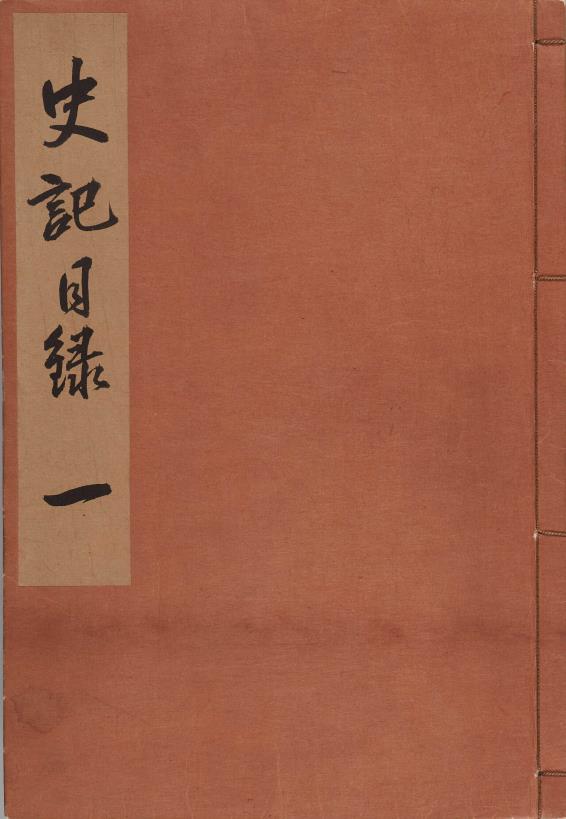 史記目録 一